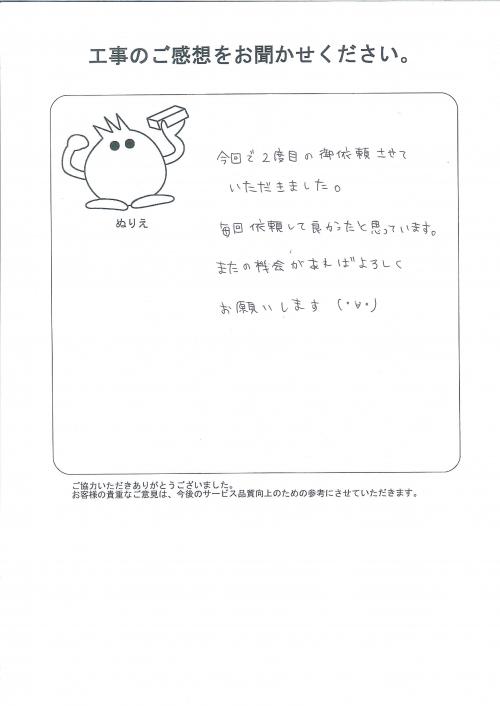 工事のご感想をお聞かせください。
ぬりえ
今回で2度目の御依頼させて
いただきました。
毎回依頼して良かったと思っています。
またの機会があればよろしく
お願いします (・∀・)
ご協力いただきありがとうございました。
お客様の貴重なご意見は、今後のサービス品質向上のための参考にさせていただきます。